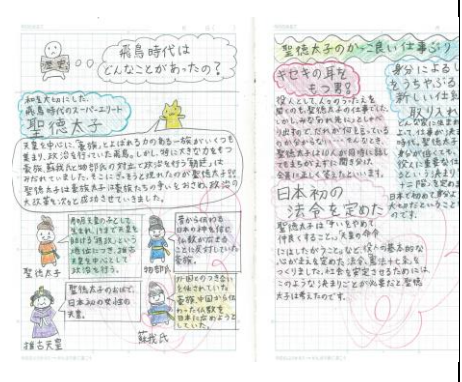 歴史
飛鳥時代は
どんなことがあったの？
和を大切にした
飛鳥時代のスーパーエリート
聖徳太子
天皇を中心に、豪族とよばれる力のある一族がいくつも
集まり、政治を行っていた飛鳥。しかし、特に大きな力をもつ
豪族、蘇我氏と物部氏の対立で政治を行う「朝廷」は
みだれていました。そこにさっそうと現れたのが聖徳太子
聖徳太子は豪族たちの争いをおさめ、政治の
大改革を次々と成功させていきました。
用明天皇の子として
生まれ、19才で天皇を
助ける「摂政」という
地位につき、推古
天皇を中心として
政治を行う。
聖徳太子
昔から伝わる
日本の神を信じ
仏教が広まる
ことに反対していた
豪族。
物部氏
聖徳太子のおばで、
日本初の女性の
天皇。
推古天皇
外国とのつき合い
を任されていた
豪族。中国から伝
わった仏教を
日本に広めようと
していた。
蘇我氏
聖徳太子のかっこ良い仕事ぶり
キセキの耳を
もつ男?
役人として人々のうったえを
聞くのも聖徳太子の仕事でした。
しかし、みながわれ先にと
り出すので、だれが何を言っている
のか分からない…。そんなとき、
聖徳太子は10人が同時に話し
てもまちがえずに聞き分け、
全員に正しく答えたといいます。
日本初の
法令を定めた
聖徳太子は「争いをやめて
仲良くすること。」「天皇の命令
にはしたがうこと。」など、役人の基本的な
心がまえを定めた法令、憲法十七条を
つくりました。社会を安定させるためには、
このようなきまりごとが必要だと聖徳
太子は考えたのです。
身分による
をうちやぶる
新しい仕
取り入れ